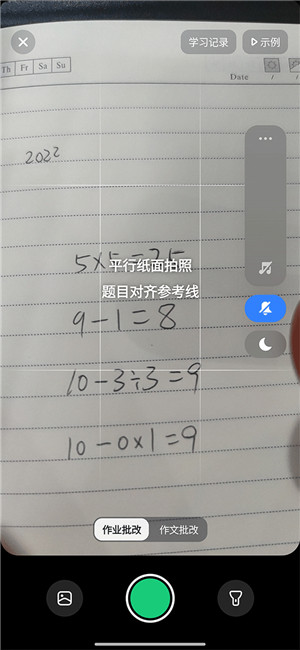 学习记录
示例
Th Fr Sa Su
Date / /
2022
5×5=25
平行纸面拍照
题目对齐参考线
9-1=8
10-3÷3=9
10-0×1=9
作业批改 作文批改